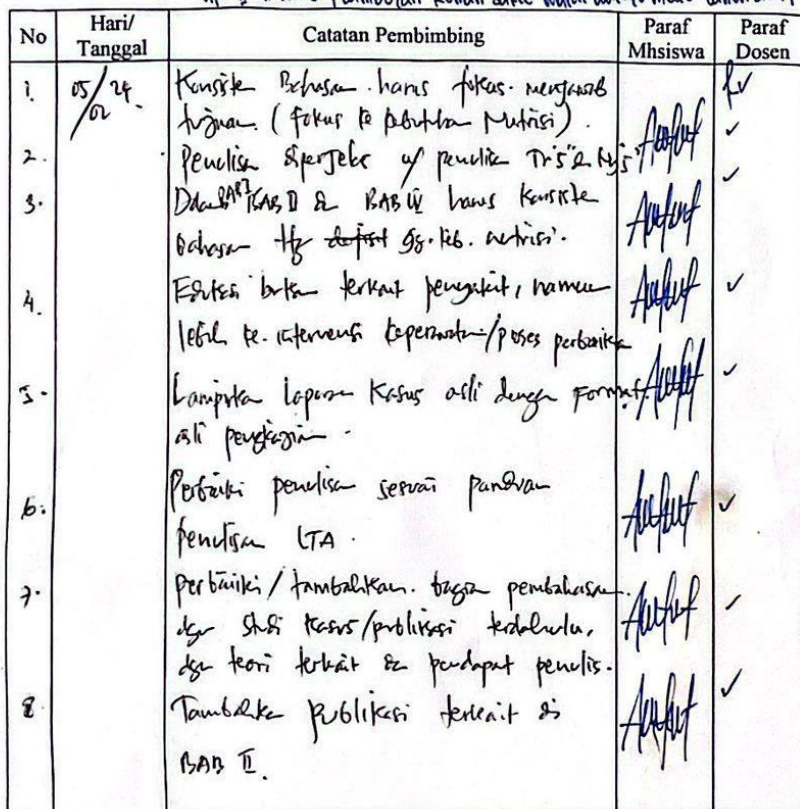 No Hari/ Tanggal Catatan Pembimbing Paraf Mhsiswa Paraf Dosen
1. 05/02 24 Konsiste Bahasan harus fokus menjawab
tujuan. (fokus ke kebutuhan Nutrisi).
2. Penulisan diperjelas u/ penulisan Tn's" & Ny's"
3. Dalam BAB I BAB II & BAB IV harus konsiste
bahasan ttg gg. keb. nutrisi.
4. Edukasi bukan terkait penyakit, namun
lebih ke intervensi keperawatan/proses perbaikan
5. Lampirka laporan kasus asli dengan Format
asli pengkajian.
6. Perbaiki penulisan sesuai panduan
penulisan LTA.
7. perbaiki/tambahkan bagian pembahasan
dgn studi kasus/publikasi terdahulu,
dgn teori terkait & pendapat penulis.
8 Tambahka Publikasi terkait di
BAB II.